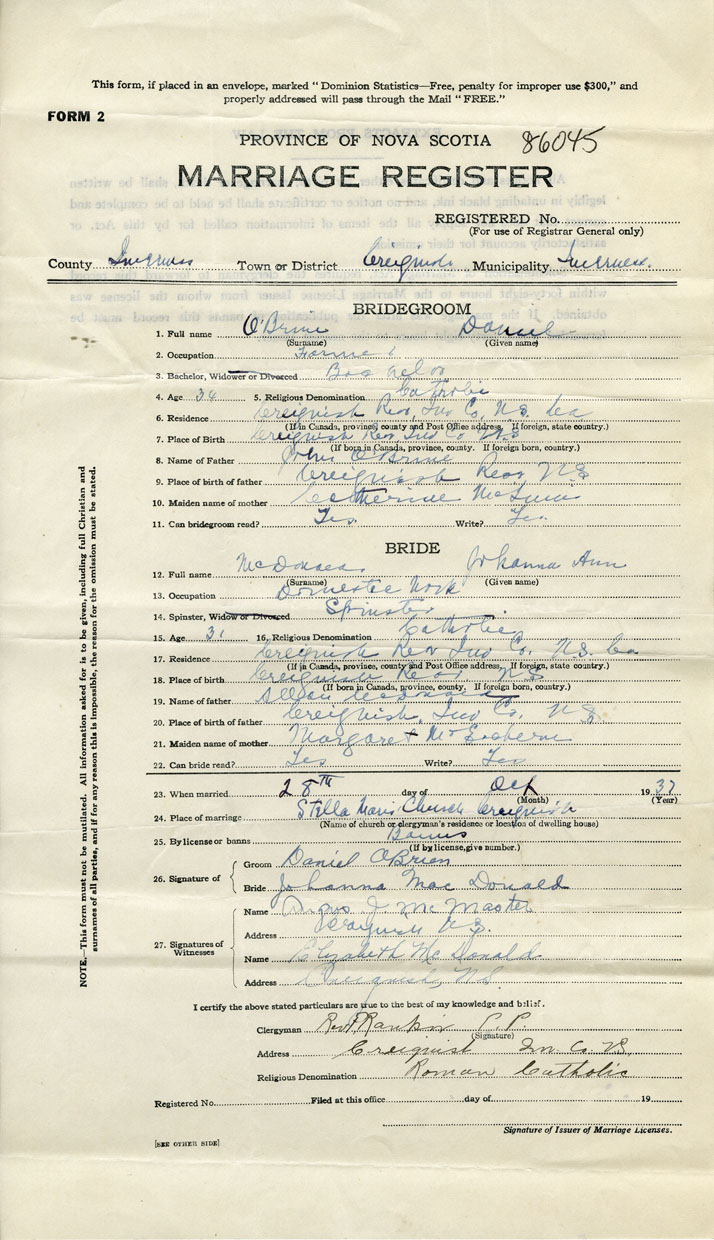 This form, if placed in an envelope, marked "Dominion Statistics—Free, penalty for improper use $300," and
properly addressed will pass through the Mail "FREE."
FORM 2
PROVINCE OF NOVA SCOTIA 86045
MARRIAGE REGISTER
REGISTERED No.
(For use of Registrar General only)
County Inverness Town or District Creignish Municipality Inverness.
BRIDEGROOM
1. Full name O'Brine Daniel
(Surname) (Given name)
2. Occupation Farmer
3. Bachelor, Widower or Divorced Bachelor
4. Age 34 5. Religious Denomination Catholic
6. Residence Creignish Rear, Inv Co, N.S. Ca
(If in Canada, province, county and Post Office address. If foreign, state country.)
7. Place of Birth Creignish Rear Inv Co N.S
(If born in Canada, province, county. If foreign born, country.)
8. Name of Father John O'Brine
9. Place of birth of father Creignish Rear N.S
10. Maiden name of mother Catherine
11. Can bridegroom read? Yes. Write? Yes.
BRIDE
12. Full name McDonald Johanna Ann
(Surname) (Given name)
13. Occupation Domestic Work
14. Spinster, Widow or Divorced Spinster
15. Age 31 16. Religious Denomination Catholic
17. Residence Creignish Rear Inv Co, N.S. Ca
(If in Canada, province, county and Post Office address, If foreign, state country.)
18. Place of birth Creignish Rear N.S
(If born in Canada, province, county. If foreign born, country.)
19. Name of father Allan
20. Place of birth of father Creignish, Inv Co, N.S.
21. Maiden name of mother Margaret McEachern
22. Can bride read? Yes Write? Yes
23. When married 28TH day of Oct 1937
(Month) (Year)
24. Place of marriage Stella Maris Church Creignish
(Name of church or clergyman's residence or location of dwelling house)
25. By license or banns Banns
(If by license, give number.)
26. Signature of Groom Daniel O'Brien
Bride Johanna Mac Donald
27. Signatures of Witnesses
Name Angus J. McMaster
Address Creignish N.S.
Name Elizabeth McDonald
Address Creignish, N.S.
I certify the above stated particulars are true to the best of my knowledge and belief.
Clergyman Rev Rankin P.P.
(Signature)
Address Creignish In. Co. N.S.
Religious Denomination Roman Catholic
Registered No. Filed at this office day of 19
Signature of Issuer of Marriage Licenses.
[SEE OTHER SIDE]
NOTE.—This form must not be mutilated. All information asked for is to be given, including full Christian and
surnames of all parties, and if for any reason this is impossible, the reason for the omission must be stated.